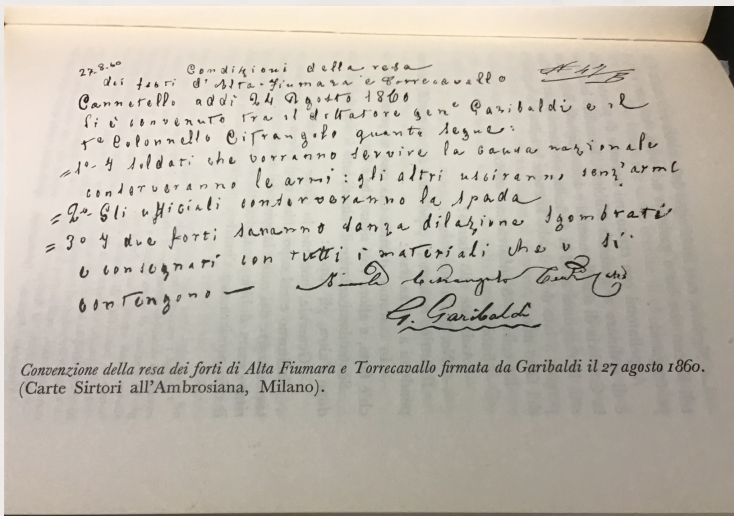 27.8.60
Condizioni della resa
dei forti d'Alta-Fiumara e Torrecavallo
Cannetello addi 24 Agosto 1860
Si è convenuto tra il dittatore gen.e Garibaldi e il
T.e Colonnello Citrangolo quante segue:
=1o- I soldati che vorranno servire la causa nazionale
conserveranno le armi: gli altri usciranno senz'armi
=2o- Gli ufficiali conserveranno la spada
=3o I due forti saranno senza dilazione sgombrati
e consegnati con tutti i materiali che vi si
contengono —
G. Garibaldi
Convenzione della resa dei forti di Alta Fiumara e Torrecavallo firmata da Garibaldi il 27 agosto 1860.
(Carte Sirtori all'Ambrosiana, Milano).